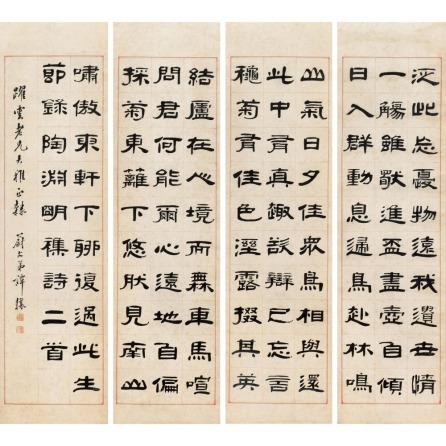 結廬在人境而無車馬喧
問君何能爾心遠地自偏
採菊東籬下悠然見南山
山氣日夕佳眾鳥相與還
此中有真趣欲辯已忘言
穐菊有佳色浥露掇其英
泛此忘憂物遠我遺世情
一觴雖獨進盃盡壺自傾
日入群動息歸鳥赴林鳴
嘯傲東軒下聊復過此生
節錄陶淵明雜詩二首
躍雲老兄大雅正隸 蔚文弟譚鑣